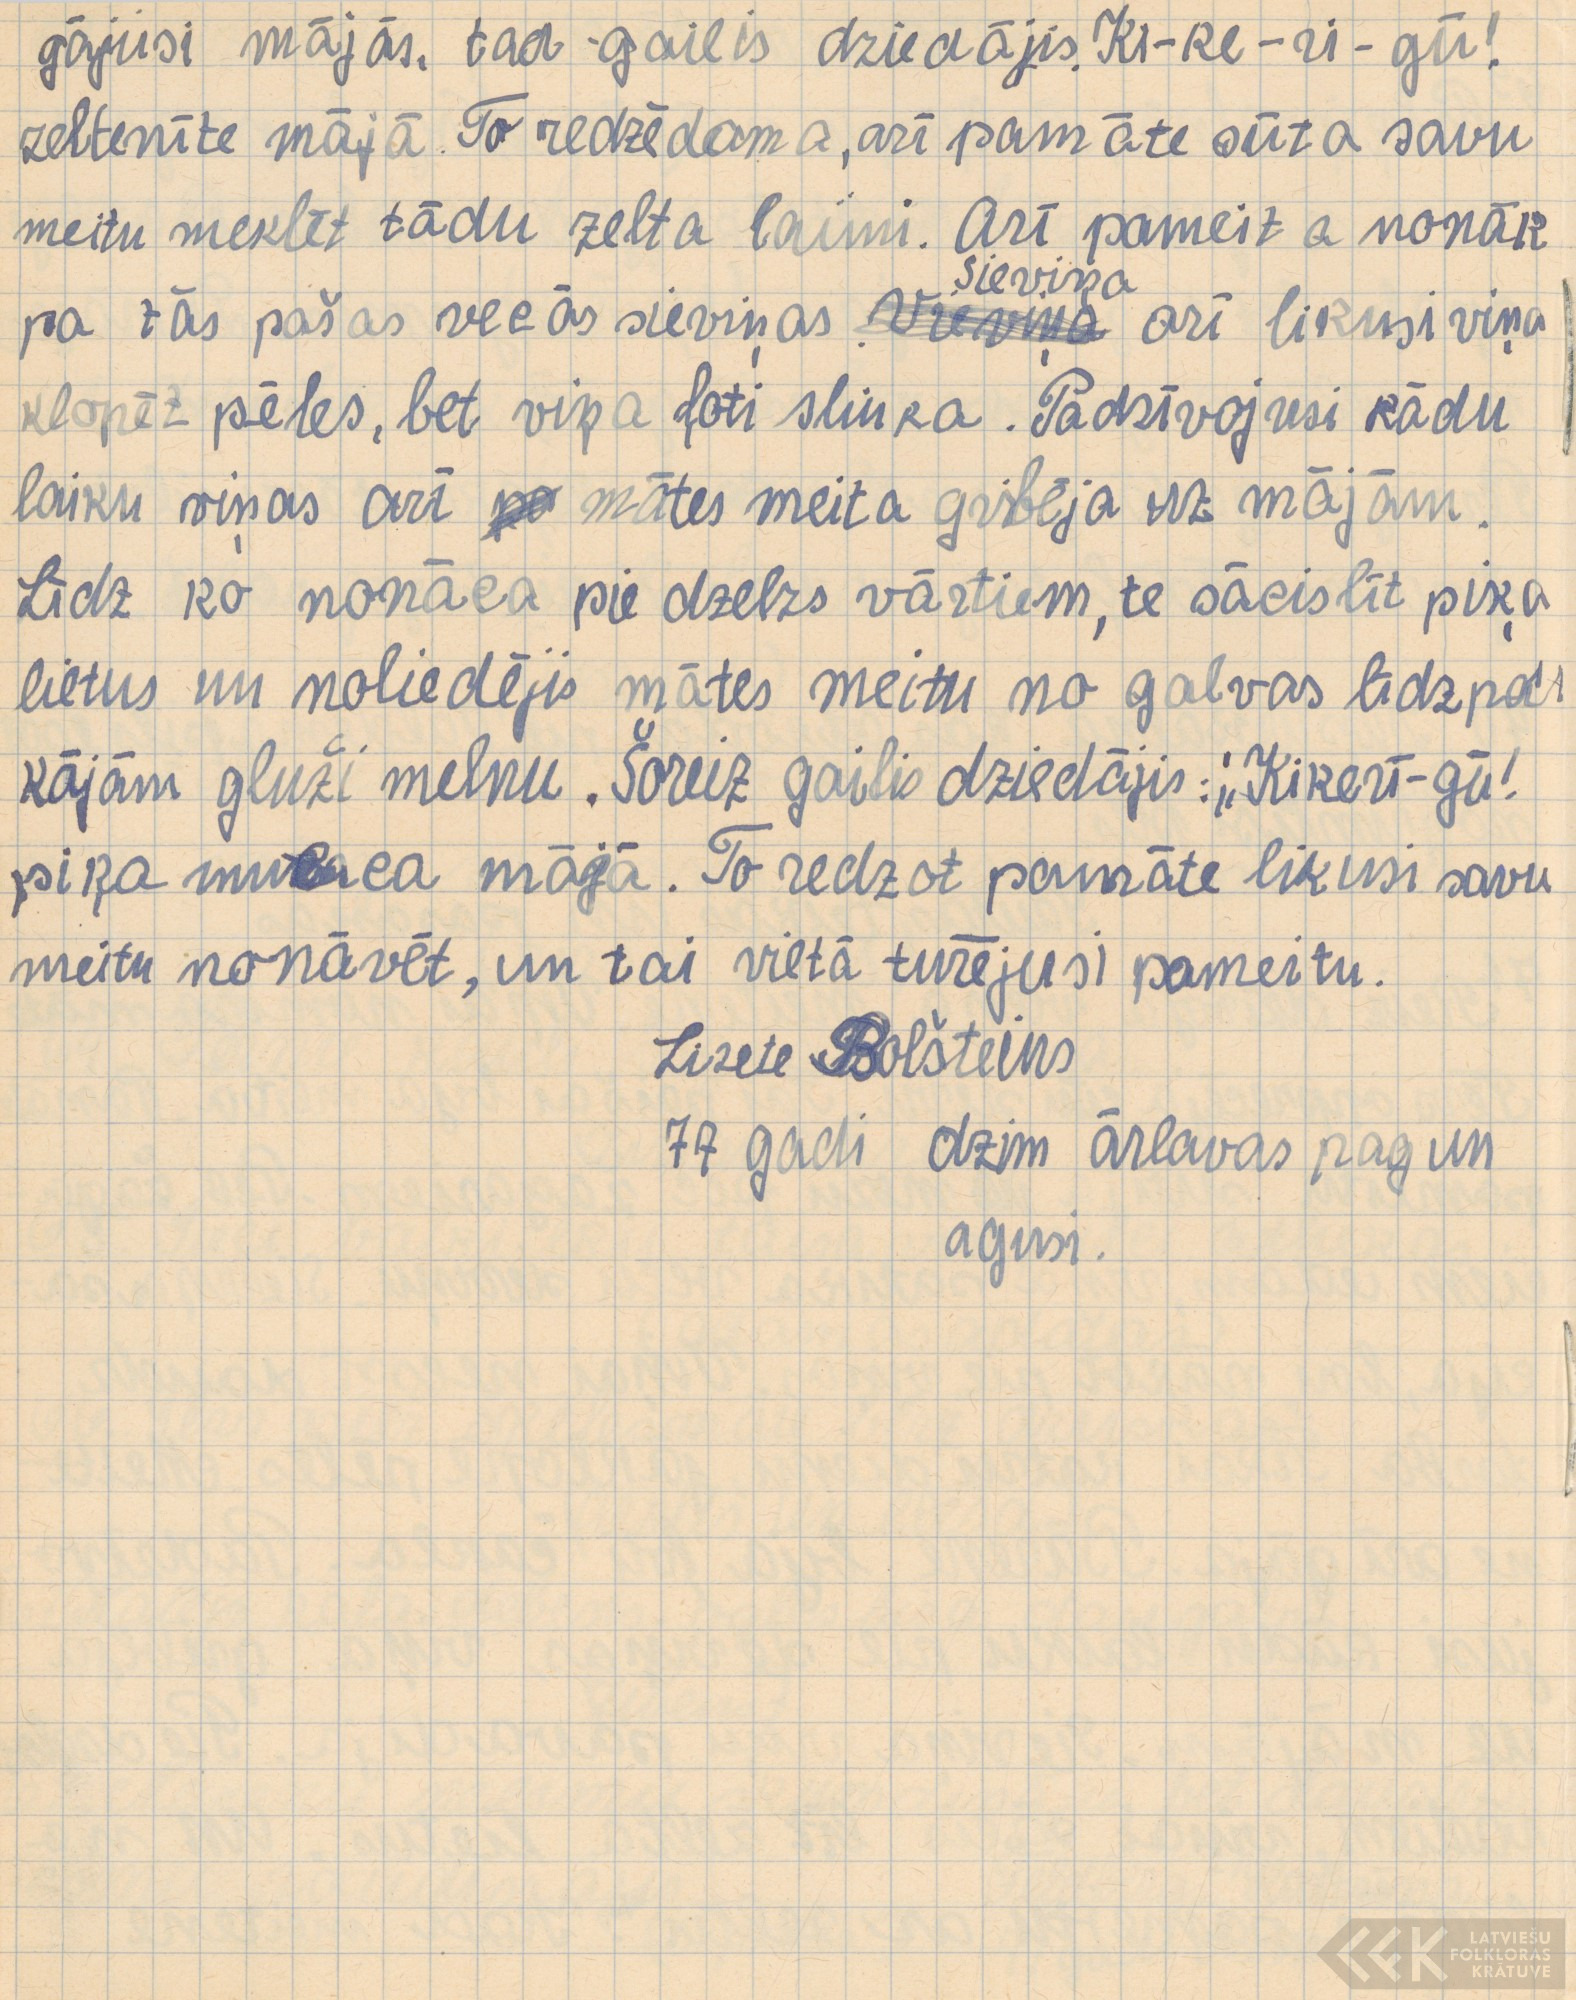 gājusi mājās. tad gailis dziedājis. Ki-ke-ri-gū!
zeltenīte mājā. To redzēdama, arī pamāte sūta savu
meitu meklēt tādu zelta laimi. Arī pameita nonāk
sieviņa
pa tās pašas vecās sieviņas Vieviņa arī likusi viņa
klopēt pēles, bet viņa ļoti slinka. Padzīvojusi kādu
laiku viņas arī pa mātes meita gribēja uz mājām.
Līdz ko nonāca pie dzelzs vārtiem, te sācis līt piķa
lietus un noliedējis mātes meitu no galvas līdz pat
kājām gluži melnu. Šoreiz gailis dziedājis: „Kikerī-gū!
piķa muca mājā. To redzot pamāte likusi savu
meitu nonāvēt, un tai vietā turējusi pameitu.
Lizete Bolšteins
77 gadi dzim ārlavas pag un
agusi.
LATVIEŠU
FOLKLORAS
KRĀTUVE